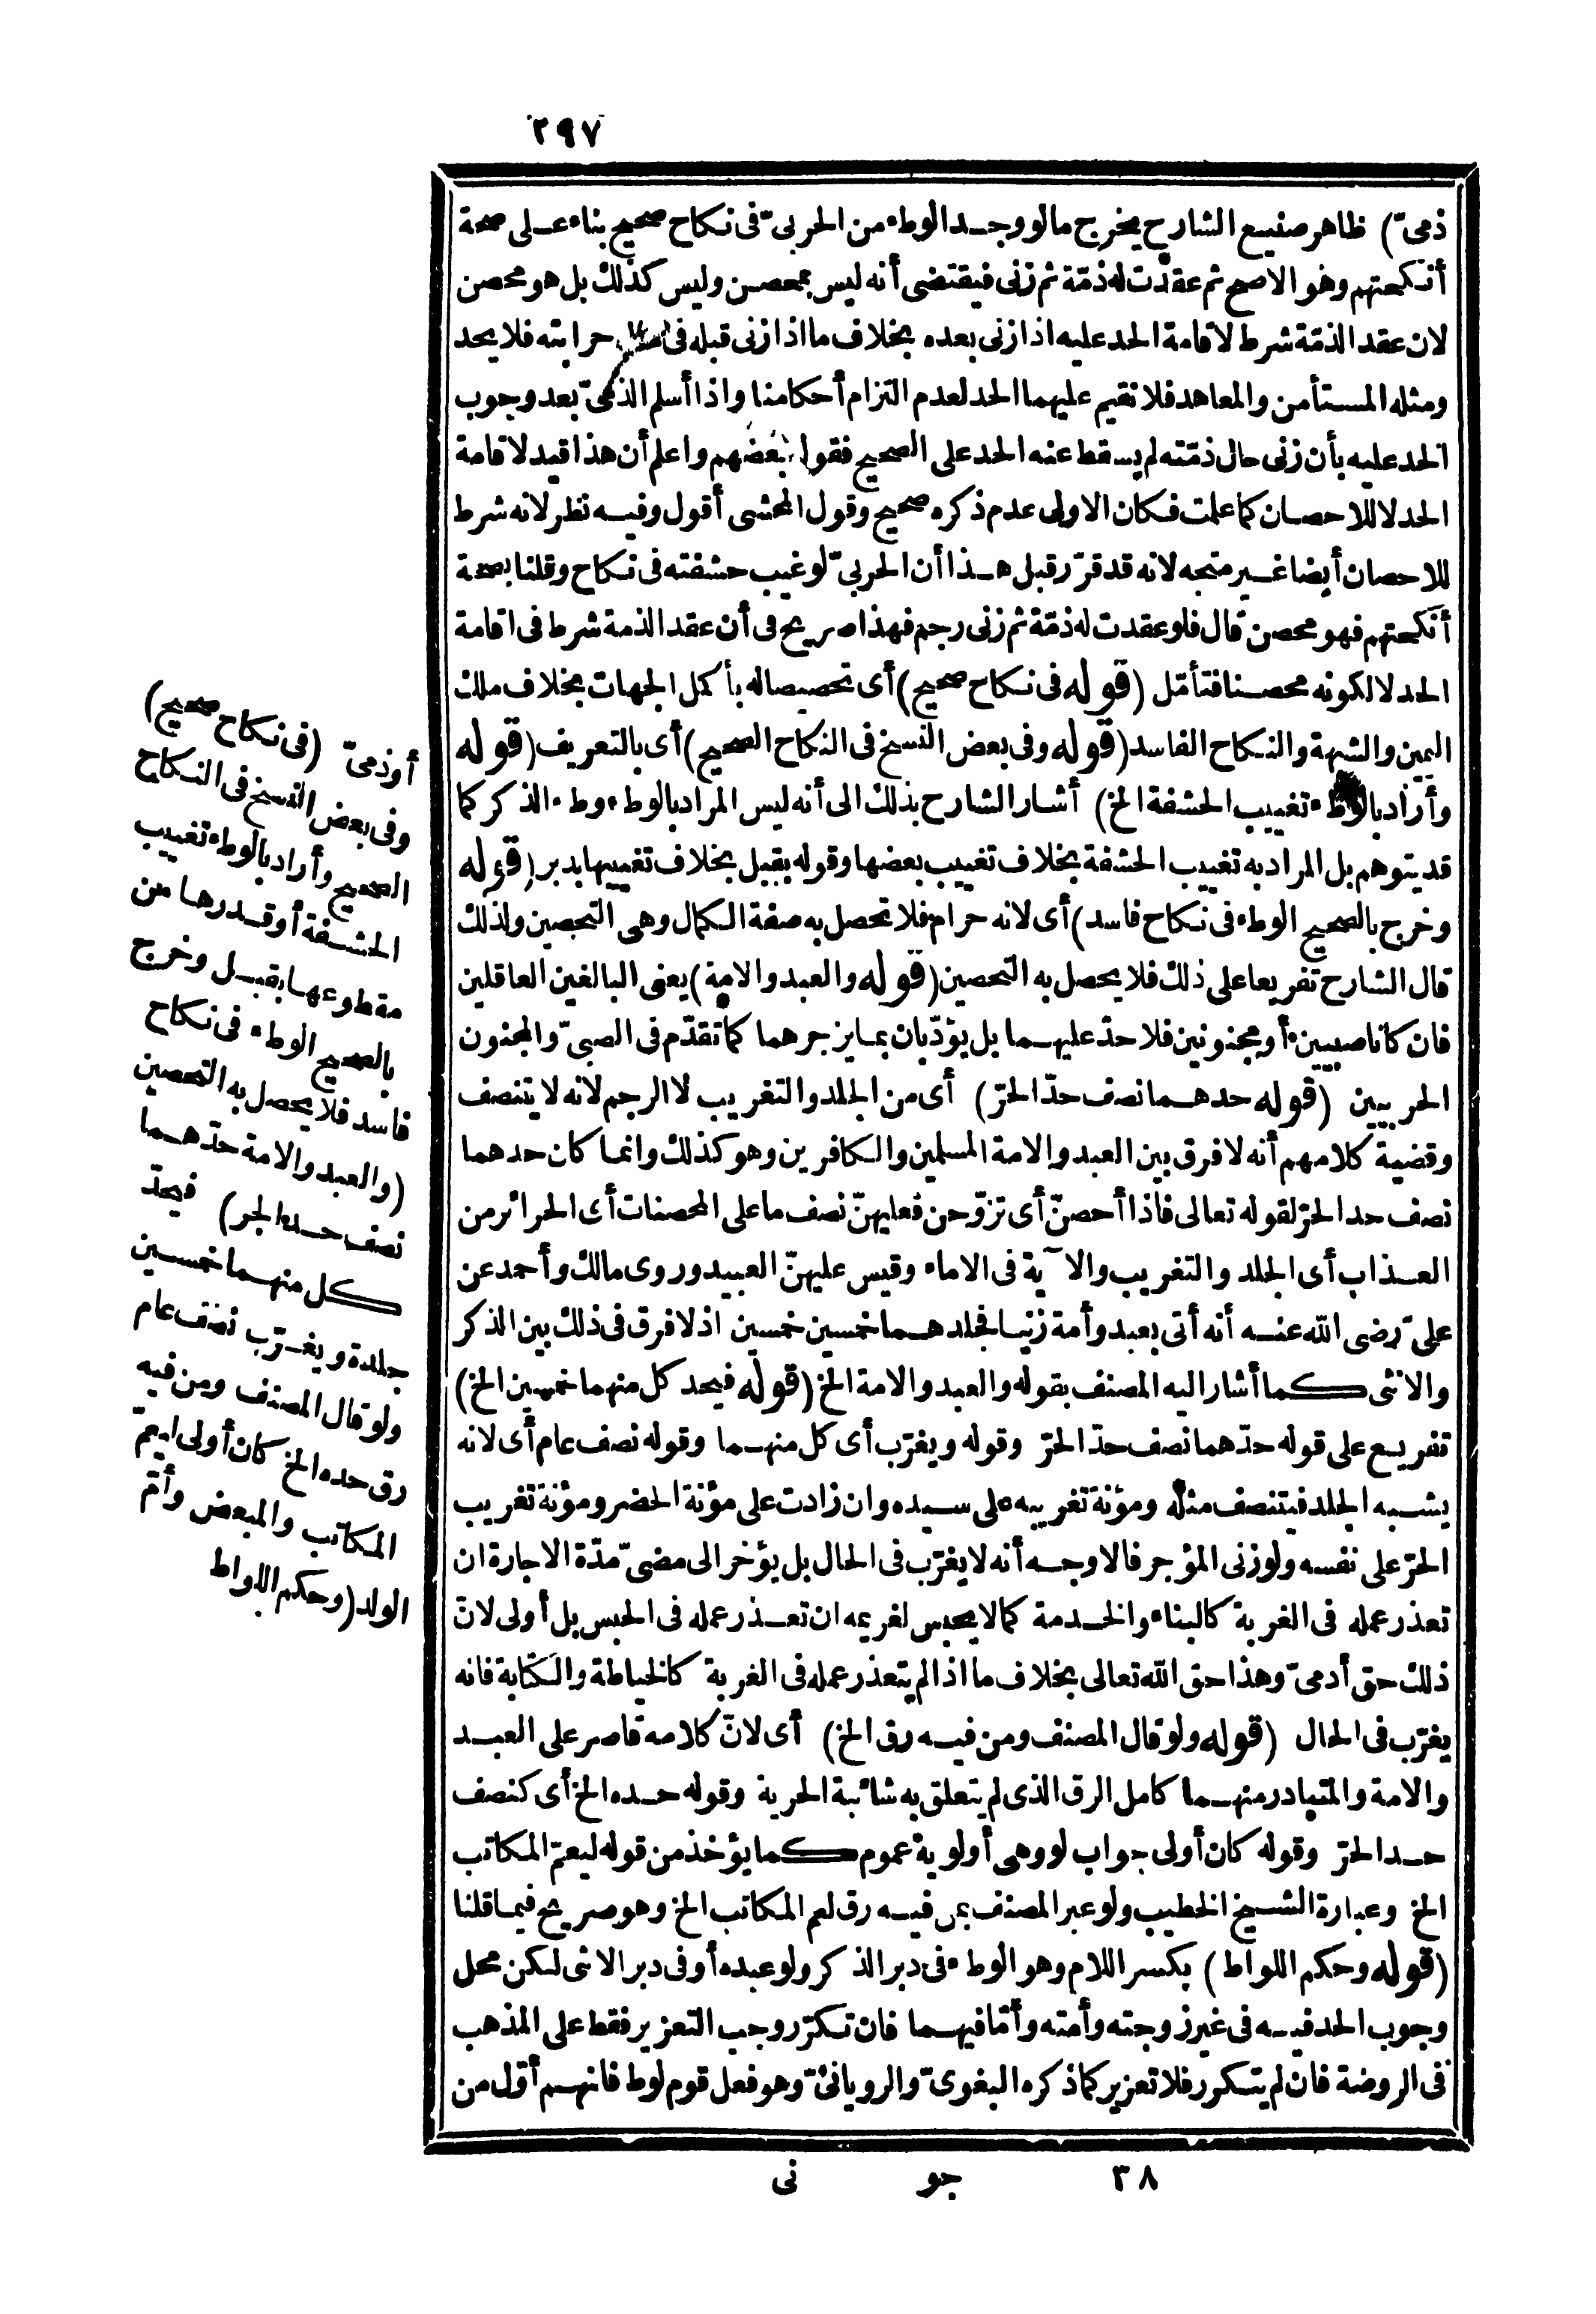 ٢٩٧
ذمىّ) ظاهر صنيع الشارح يخرج مالو وجد الوطء من الحربىّ فى نكاح صحيح بناء على صحة
أنكحتهم وهو الاصح ثم عقدت له ذمّة ثم زنى فيقتضى أنه ليس بمحصن وليس كذلك بل هو محصن
لان عقد الذمّة شرط لاقامة الحد عليه اذا زنى بعده بخلاف ما اذا زنى قبله فى حرابته فلا يحد
ومثله المستأمن والمعاهد فلا نقيم عليهما الحد لعدم التزام أحكامنا واذا أسلم الذمّىّ بعد وجوب
الحد عليه بأن زنى حال ذمّته لم يسقط عنه الحد على الصحيح فقول بعضهم واعلم أن هذا قيد لاقامة
الحد لا للاحصان كما علمت فكان الاولى عدم ذكره صحيح وقول المحشى أقول وفيه نظر لانه شرط
للاحصان أيضا غير متجه لانه قد قرّر قبل هذا أن الحربىّ لو غيب حشفته فى نكاح وقلنا بصحة
أنكحتهم فهو محصن قال فلو عقدت له ذمّة ثم زنى رجم فهذا صريح فى أن عقد الذمة شرط فى اقامة
الحد لا لكونه محصنا فتأمّل (قوله فى نكاح صحيح) أى تخصيصا له بأكمل الجهات بخلاف ملك
اليمين والشبهة والنكاح الفاسد (قوله وفى بعض النسخ فى النكاح الصحيح) أى بالتعريف (قوله
وأراد بالوطء تغييب الحشفة الخ) أشار الشارح بذلك الى أنه ليس المراد بالوطء وطء الذكر كما
قد يتوهم بل المراد به تغييب الحشفة بخلاف تغييب بعضها وقوله بقبل بخلاف تغييبها بدبر (قوله
وخرج بالصحيح الوطء فى نكاح فاسد) أى لانه حرام فلا تحصل به صفة الكمال وهى التحصين ولذلك
قال الشارح تفريعا على ذلك فلا يحصل به التحصين (قوله والعبد والامة) يعنى البالغين العاقلين
فان كانا صبيين أو مجنونين فلا حدّ عليهما بل يؤدّبان بما يزجرهما كما تقدّم فى الصبىّ والمجنون
الحربيين (قوله حدهما نصف حدّ الحرّ) أى من الجلد والتغريب لا الرجم لانه لا يتنصف
وقضية كلامهم أنه لا فرق بين العبد والامة المسلمين والكافرين وهو كذلك وانما كان حدهما
نصف حد الحرّ لقوله تعالى فاذا أحصنّ أى تزوّجن فعليهنّ نصف ما على المحصنات أى الحرائر من
العذاب أى الجلد والتغريب والآية فى الاماء وقيس عليهنّ العبيد وروى مالك وأحمد عن
علىّ رضى الله عنه أنه أتى بعبد وأمة زنيا فجلدهما خمسين خمسين اذ لا فرق فى ذلك بين الذكر
والانثى كما أشار اليه المصنف بقوله والعبد والامة الخ (قوله فيحد كل منهما خمسين الخ)
تفريع على قوله حدّهما نصف حدّ الحرّ وقوله ويغرّب أى كل منهما وقوله نصف عام أى لانه
يشبه الجلد فيتنصف مثله ومؤنة تغريبه على سيده وان زادت على مؤنة الحضر ومؤنة تغريب
الحرّ على نفسه ولو زنى المؤجر فالاوجه أنه لا يغرّب فى الحال بل يؤخر الى مضىّ مدّة الاجارة ان
تعذر عمله فى الغربة كالبناء والخدمة كما لا يحبس لغريمه ان تعذر عمله فى الحبس بل أولى لانّ
ذلك حق أدمىّ وهذا حق الله تعالى بخلاف ما اذا لم يتعذر عمله فى الغربة كالخياطة والكتابة فانه
يغرّب فى الحال (قوله ولو قال المصنف ومن فيه رق الخ) أى لانّ كلامه قاصر على العبد
والامة والمتبادر منهما كامل الرق الذى لم يتعلق به شائبة الحرية وقوله حده الخ أى كنصف
حد الحرّ وقوله كان أولى جواب لو وهى أولوية عموم كما يؤخذ من قوله ليعمّ المكاتب
الخ وعبارة الشيخ الخطيب ولو عبر المصنف بمن فيه رق لعم المكاتب الخ وهو صريح فيما قلنا
(قوله وحكم اللواط) بكسر اللام وهو الوطء فى دبر الذكر ولو عبده أو فى دبر الانثى لكن محل
وجوب الحد فيه فى غير زوجته وأمته وأمّا فيهما فان تكرّر وجب التعزير فقط على المذهب
فى الروضة فان لم يتكرر فلا تعزير كما ذكره البغوىّ والرويانىّ وهو فعل قوم لوط فانهم أوّل من
أو ذمىّ (فى نكاح صحيح)
وفى بعض النسخ فى النكاح
الصحيح وأراد بالوطء تغييب
الحشفة أو قدرها من
مقطوعها بقبل وخرج
بالصحيح الوطء فى نكاح
فاسد فلا يحصل به التحصين
(والعبد والامة حدّهما
نصف حد الحر) فيحدّ
كل منهما خمسين
جلدة ويغرّب نصف عام
ولو قال المصنف ومن فيه
رق حده الخ كان أولى ليعمّ
المكاتب والمبعض وأمّ
الولد (وحكم اللواط
٣٨ جو نى